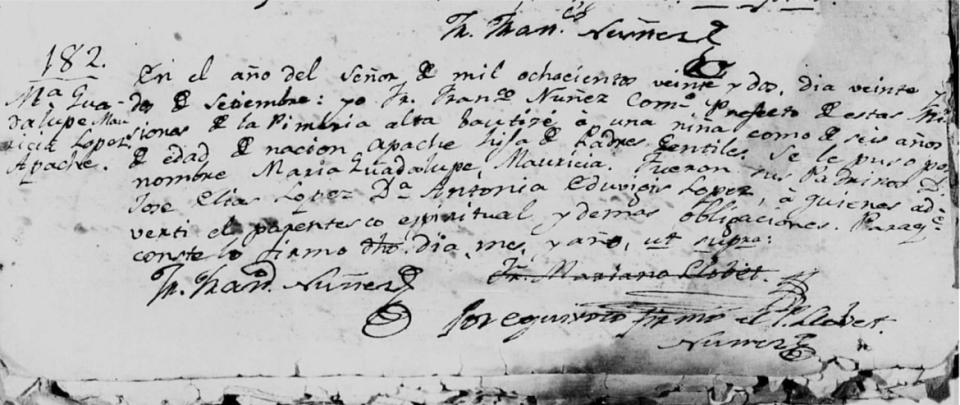 Fr. Fran.co Nuñez
182.
Ma. Gua-
dalupe Mau
ricia Lopez
Apache.
En el año del Señor de mil ochocientos veinte y dos, dia veinte y
dos de Setiembre: yo Fr. Franco. Nuñez Como. Prefecto de estas Mi
siones de la Pimeria alta bautize a una niña como de seis años
de edad de nacion Apache hija de Padres Gentiles. Se le puso por
nombre Maria Guadalupe, Mauricia. Fueron sus Padrinos D.
Jose Elias Lopez Da. Antonia Eduvigis Lopez, à quienes ad-
verti el parentesco espiritual y demas obligaciones. Paraqe.
conste lo firmo dho. dia, mes, y año, ut supra:
Fr. Franco. Nuñez
Fr. Mariano Llobet.
Por equivoco firmò el Pe. Llobet.
Nuñez